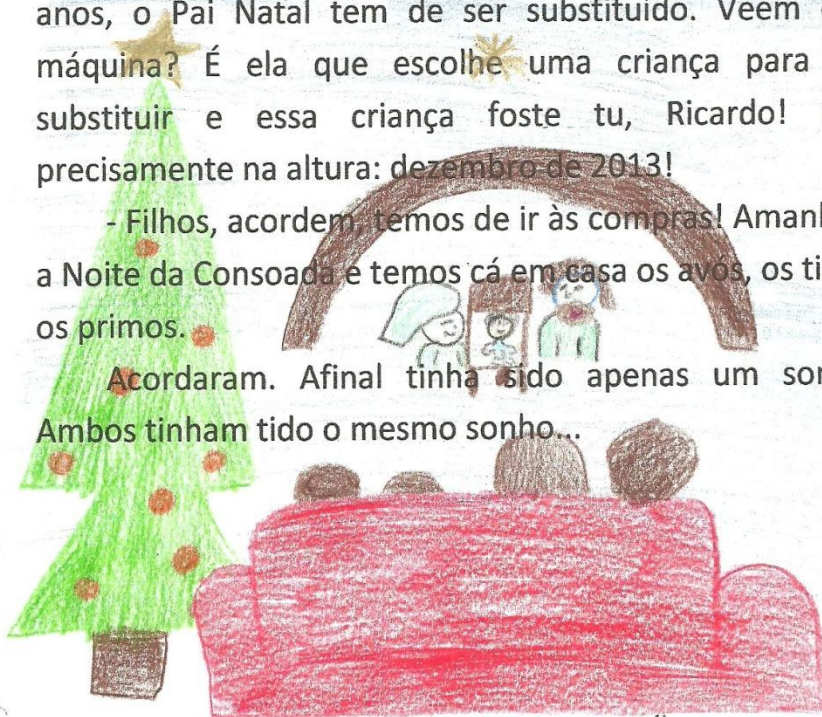 anos, o Pai Natal tem de ser substituído. Veem
máquina? É ela que escolhe uma criança para
substituir e essa criança foste tu, Ricardo!
precisamente na altura: dezembro de 2013!
- Filhos, acordem, temos de ir às compras! Amanh
a Noite da Consoada e temos cá em casa os avós, os ti
os primos.
Acordaram. Afinal tinha sido apenas um son
Ambos tinham tido o mesmo sonho...